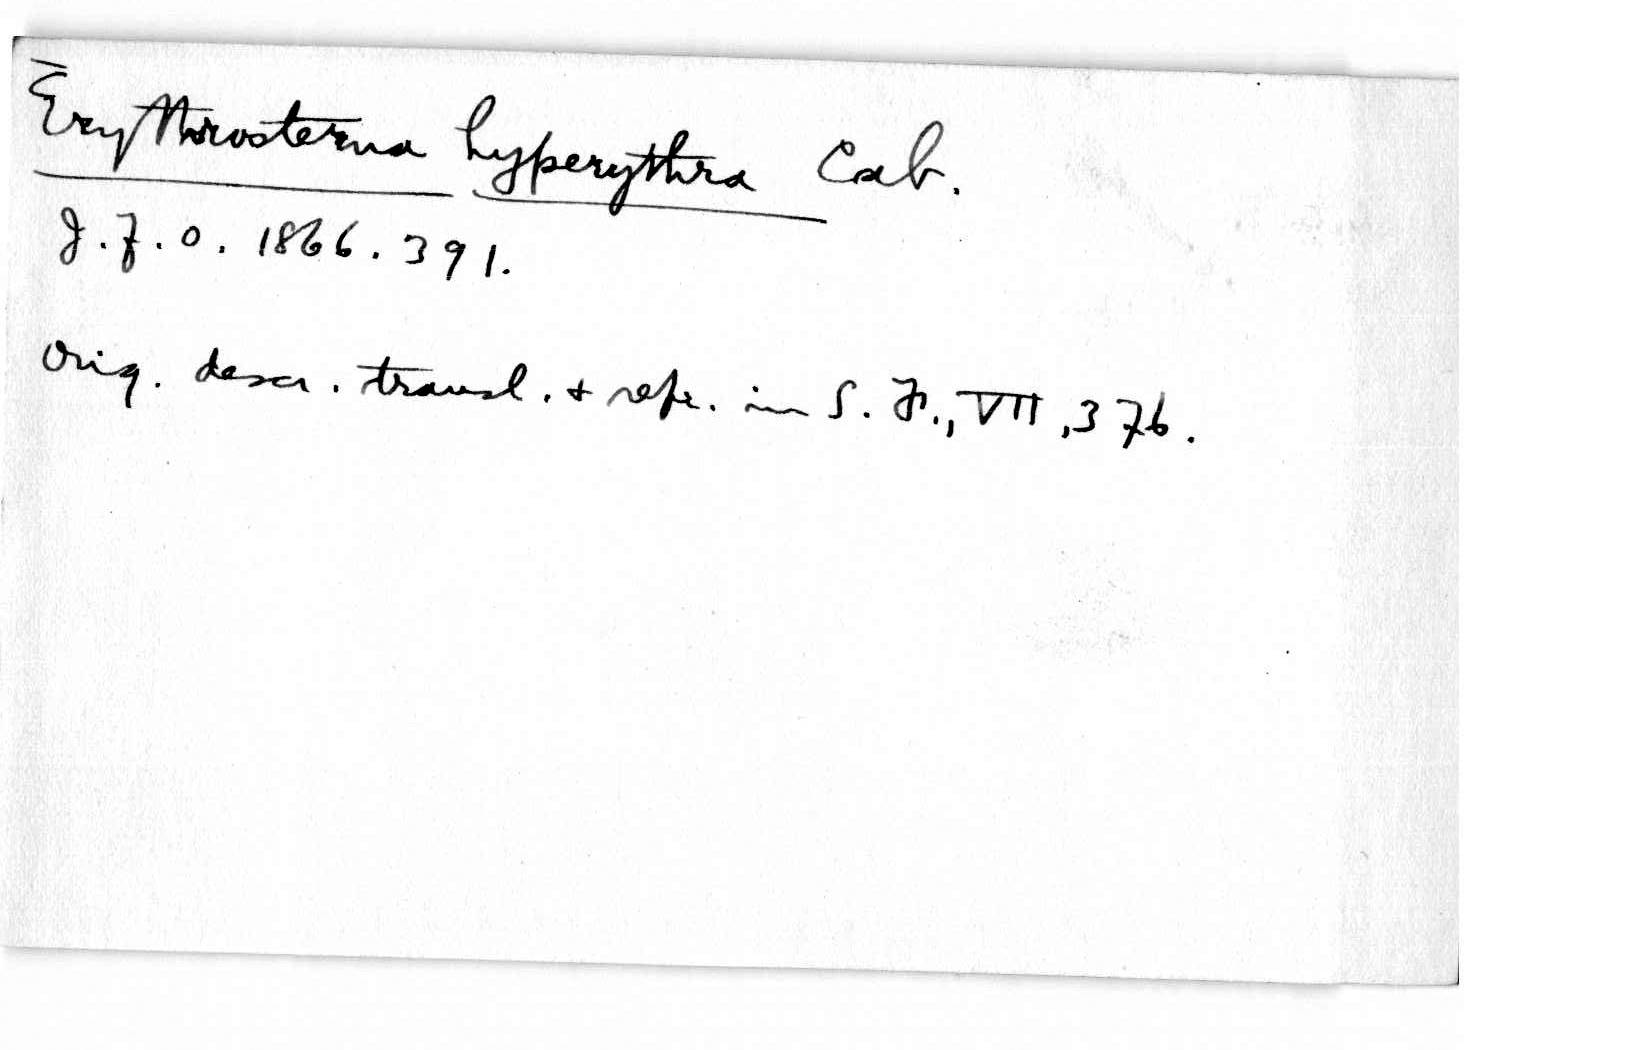 Erythrosterna hyperythra Cab.
J.f.O. 1866. 391.
Orig. descr. transl. + refr. in S. F., VII, 376.